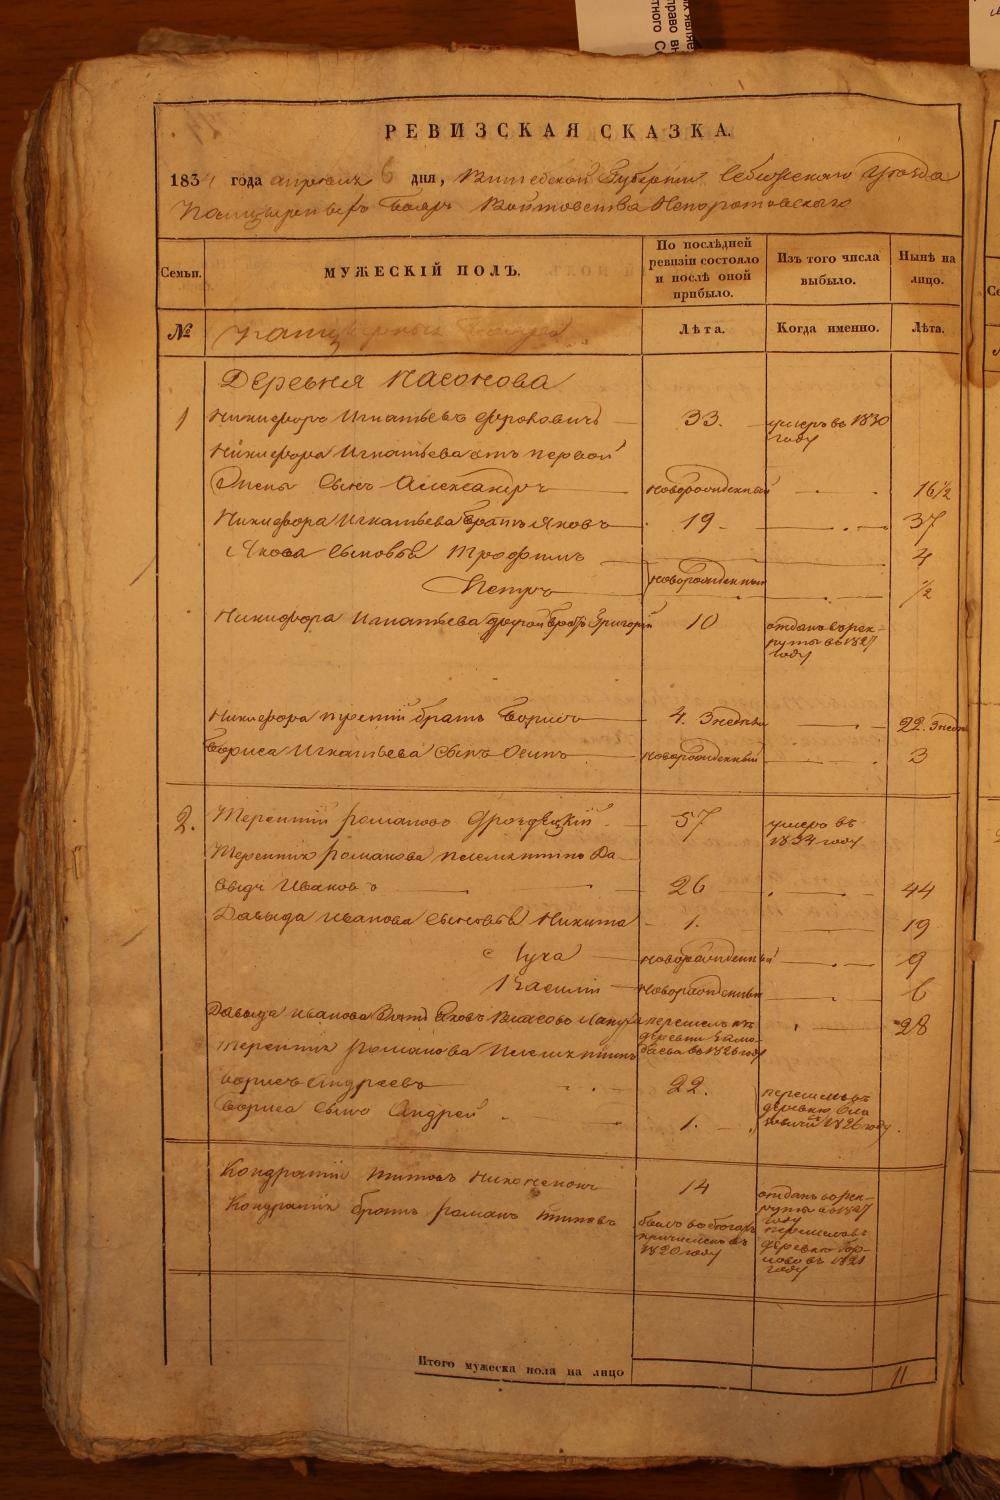 РЕВИЗСКАЯ СКАЗКА.
183 года апреля 6 дня, Витебской Губернии Себежского Уезда
Панцырныхъ Бояръ Войтовства Непоротовскаго
Семьи.
МУЖЕСКІЙ ПОЛЪ.
По послѣдней ревизіи состояло и послѣ оной прибыло.
Изъ того числа выбыло.
Нынѣ на лицо.
№
Панцырныхъ Бояръ
Лѣта.
Когда именно.
Лѣта.
Деревня
1 Никифоръ Игнатьевъ 33. умеръ въ 1830 году
Никифора Игнатьева отъ первой
жены сынъ Александръ новорожденный 16½
Никифора Игнатьева братъ Яковъ 19 37
Якова сыновья Трофимъ 4
Петръ новорожденныи ½
Никифора Игнатьева другой братъ Григорій 10 отданъ въ рекруты въ 1827 году
Никифора третій братъ Борисъ 4. 3 недели 22. 3 недели
Бориса Игнатьева сынъ Осипъ новорожденный 3
2. Терентій Романовъ 57 умеръ въ 1834 году
Терентия Романова племянникъ Да-
выдъ Ивановъ 26 44
Давыда Иванова сыновья Никита 1. 19
Лука новорожденный 9
Василій новорожденный 6
Давыда Иванова Яковъ Власовъ перешелъ изъ деревни въ 1826 году 28
Терентия Романова племянникъ
Борисъ Андреевъ 22. перешелъ въ деревню въ 1826 году
Бориса сынъ Андрей 1.
Кондратій Титовъ 14 отданъ въ рекруты въ 1827 году
Кондратия братъ Романъ Титовъ причисленъ въ 1820 году перешелъ въ деревню въ 1821 году
Итого мужеска пола на лицо 11